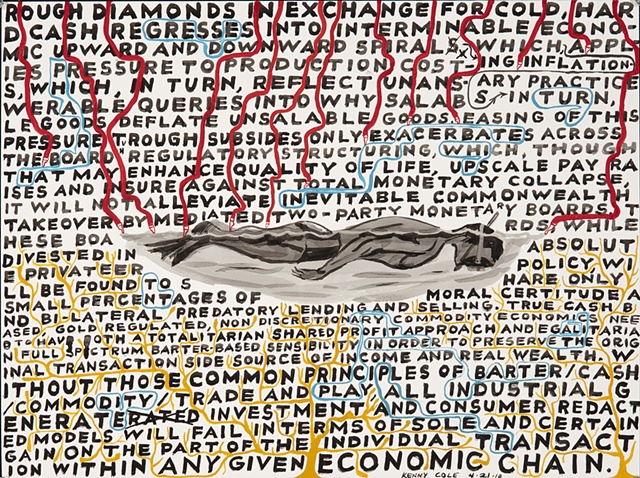 ROUGH DIAMONDS IN EXCHANGE FOR COLD, HAR
D CASH REGRESSES INTO INTERMINABLE ECONO
MIC UPWARD AND DOWNWARD SPIRALS, WHICH APPL
IES PRESSURE TO PRODUCTION COST ING INFLATION
S, WHICH, IN TURN, REFLECT UNANS- ARY PRACTICE
WERABLE QUERIES INTO WHY SALAB S, IN TURN,
LE GOODS DEFLATE UNSALABLE GOODS. EASING OF THIS
PRESSURE TROUGH SUBSIDES ONLY EXACERBATES ACROSS
THE BOARD REGULATORY STRUCTURING, WHICH, THOUGH
THAT MAY ENHANCE QUALITY OF LIFE, UPSCALE PAY RA
ISES AND INSURE AGAINST TOTAL MONETARY COLLAPSE,
IT WILL NOT ALLEVIATE INEVITABLE COMMONWEALTH
TAKEOVER BY MEDIATED TWO-PART MONETARY BOARDS.
HESE BOA RDS, WHILE
DIVESTED IN ABSOLUT
E PRIVATEER POLICY, WI
LL BE FOUND TO S HARE ONLY
SMALL PERCENTAGES OF MORAL CERTITUDE,
ND BI-LATERAL PREDATORY LENDING AND SELLING, TRUE CASH B
ASED, GOLD REGULATED, NON DISCRETIONARY COMMODITY ECONOMICS
BOTH A TOTALITARIAN SHARED PROFIT APPROACH AND EGALITARIA
N FULL SPECTRUM BARTER-BASED SENSIBILITY IN ORDER TO PRESERVE TH ORIG
NAL TRANSACTION SIDE SOURCE OF INCOME AND REAL WEALTH. W
THOUT THOSE COMMON PRINCIPLES OF BARTER/CASH
/COMMODITY/TRADE AND PLAY ALL INDUSTRIAL G
ENERATERATED INVESTMENT AND CONSUMER REDACT
ED MODELS WILL FAIL IN TERMS OF SOLE AND CERTAIN
AGATION ON THE PART OF THE INDIVIDUAL TRANSACT
ION WITHIN ANY GIVEN ECONOMIC CHAIN.
KENNY COLE 4-21-10